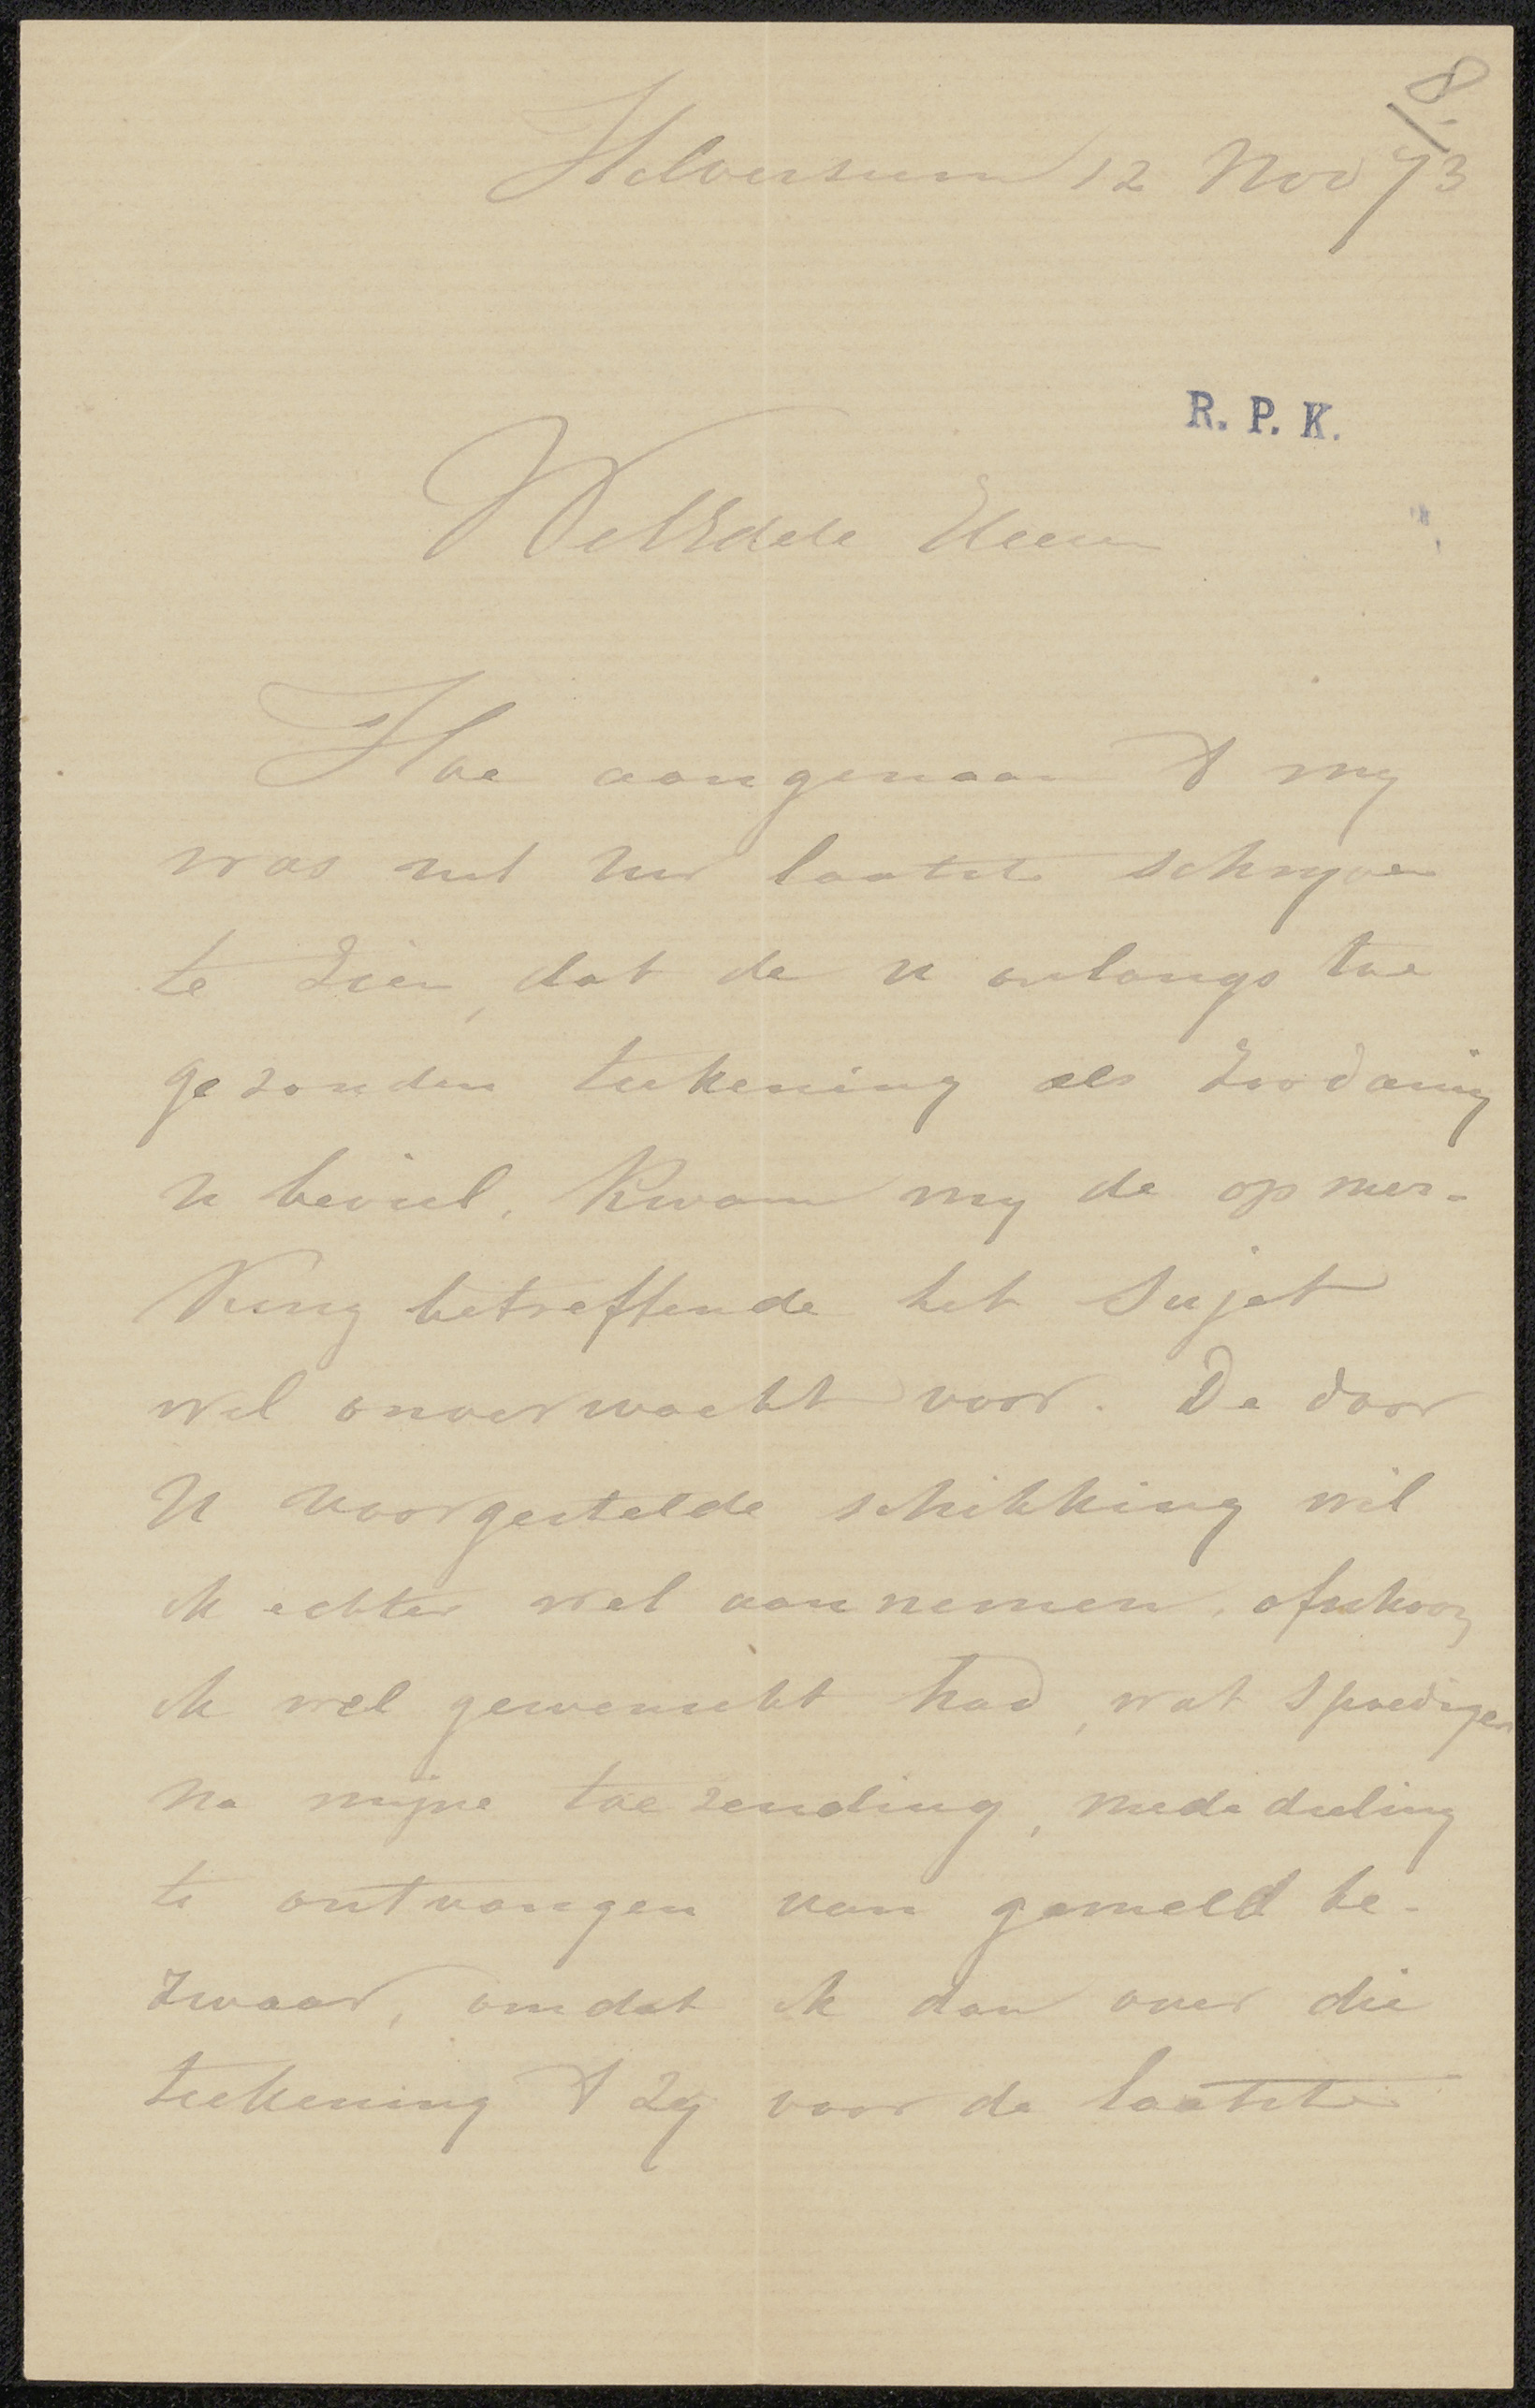 8.
Hilversum 12 Nov 73
R. P. K.
WelEdele Heer
Hoe aangenaam 't my
was uit Uw laatste schryven
te zien, dat de U onlangs toe
gezonden teekening als zoodanig
U beviel, kwam my de opmer-
king betreffende het Sujet
wel onverwacht voor. De door
U voorgestelde schikking wil
ik echter wel aannemen, ofschoon
ik wel gewenscht had, wat spoediger
na mijne toezending, mededeeling
te ontvangen van gemeld be-
zwaar, omdat ik dan over die
teekening 't zy voor de laatste